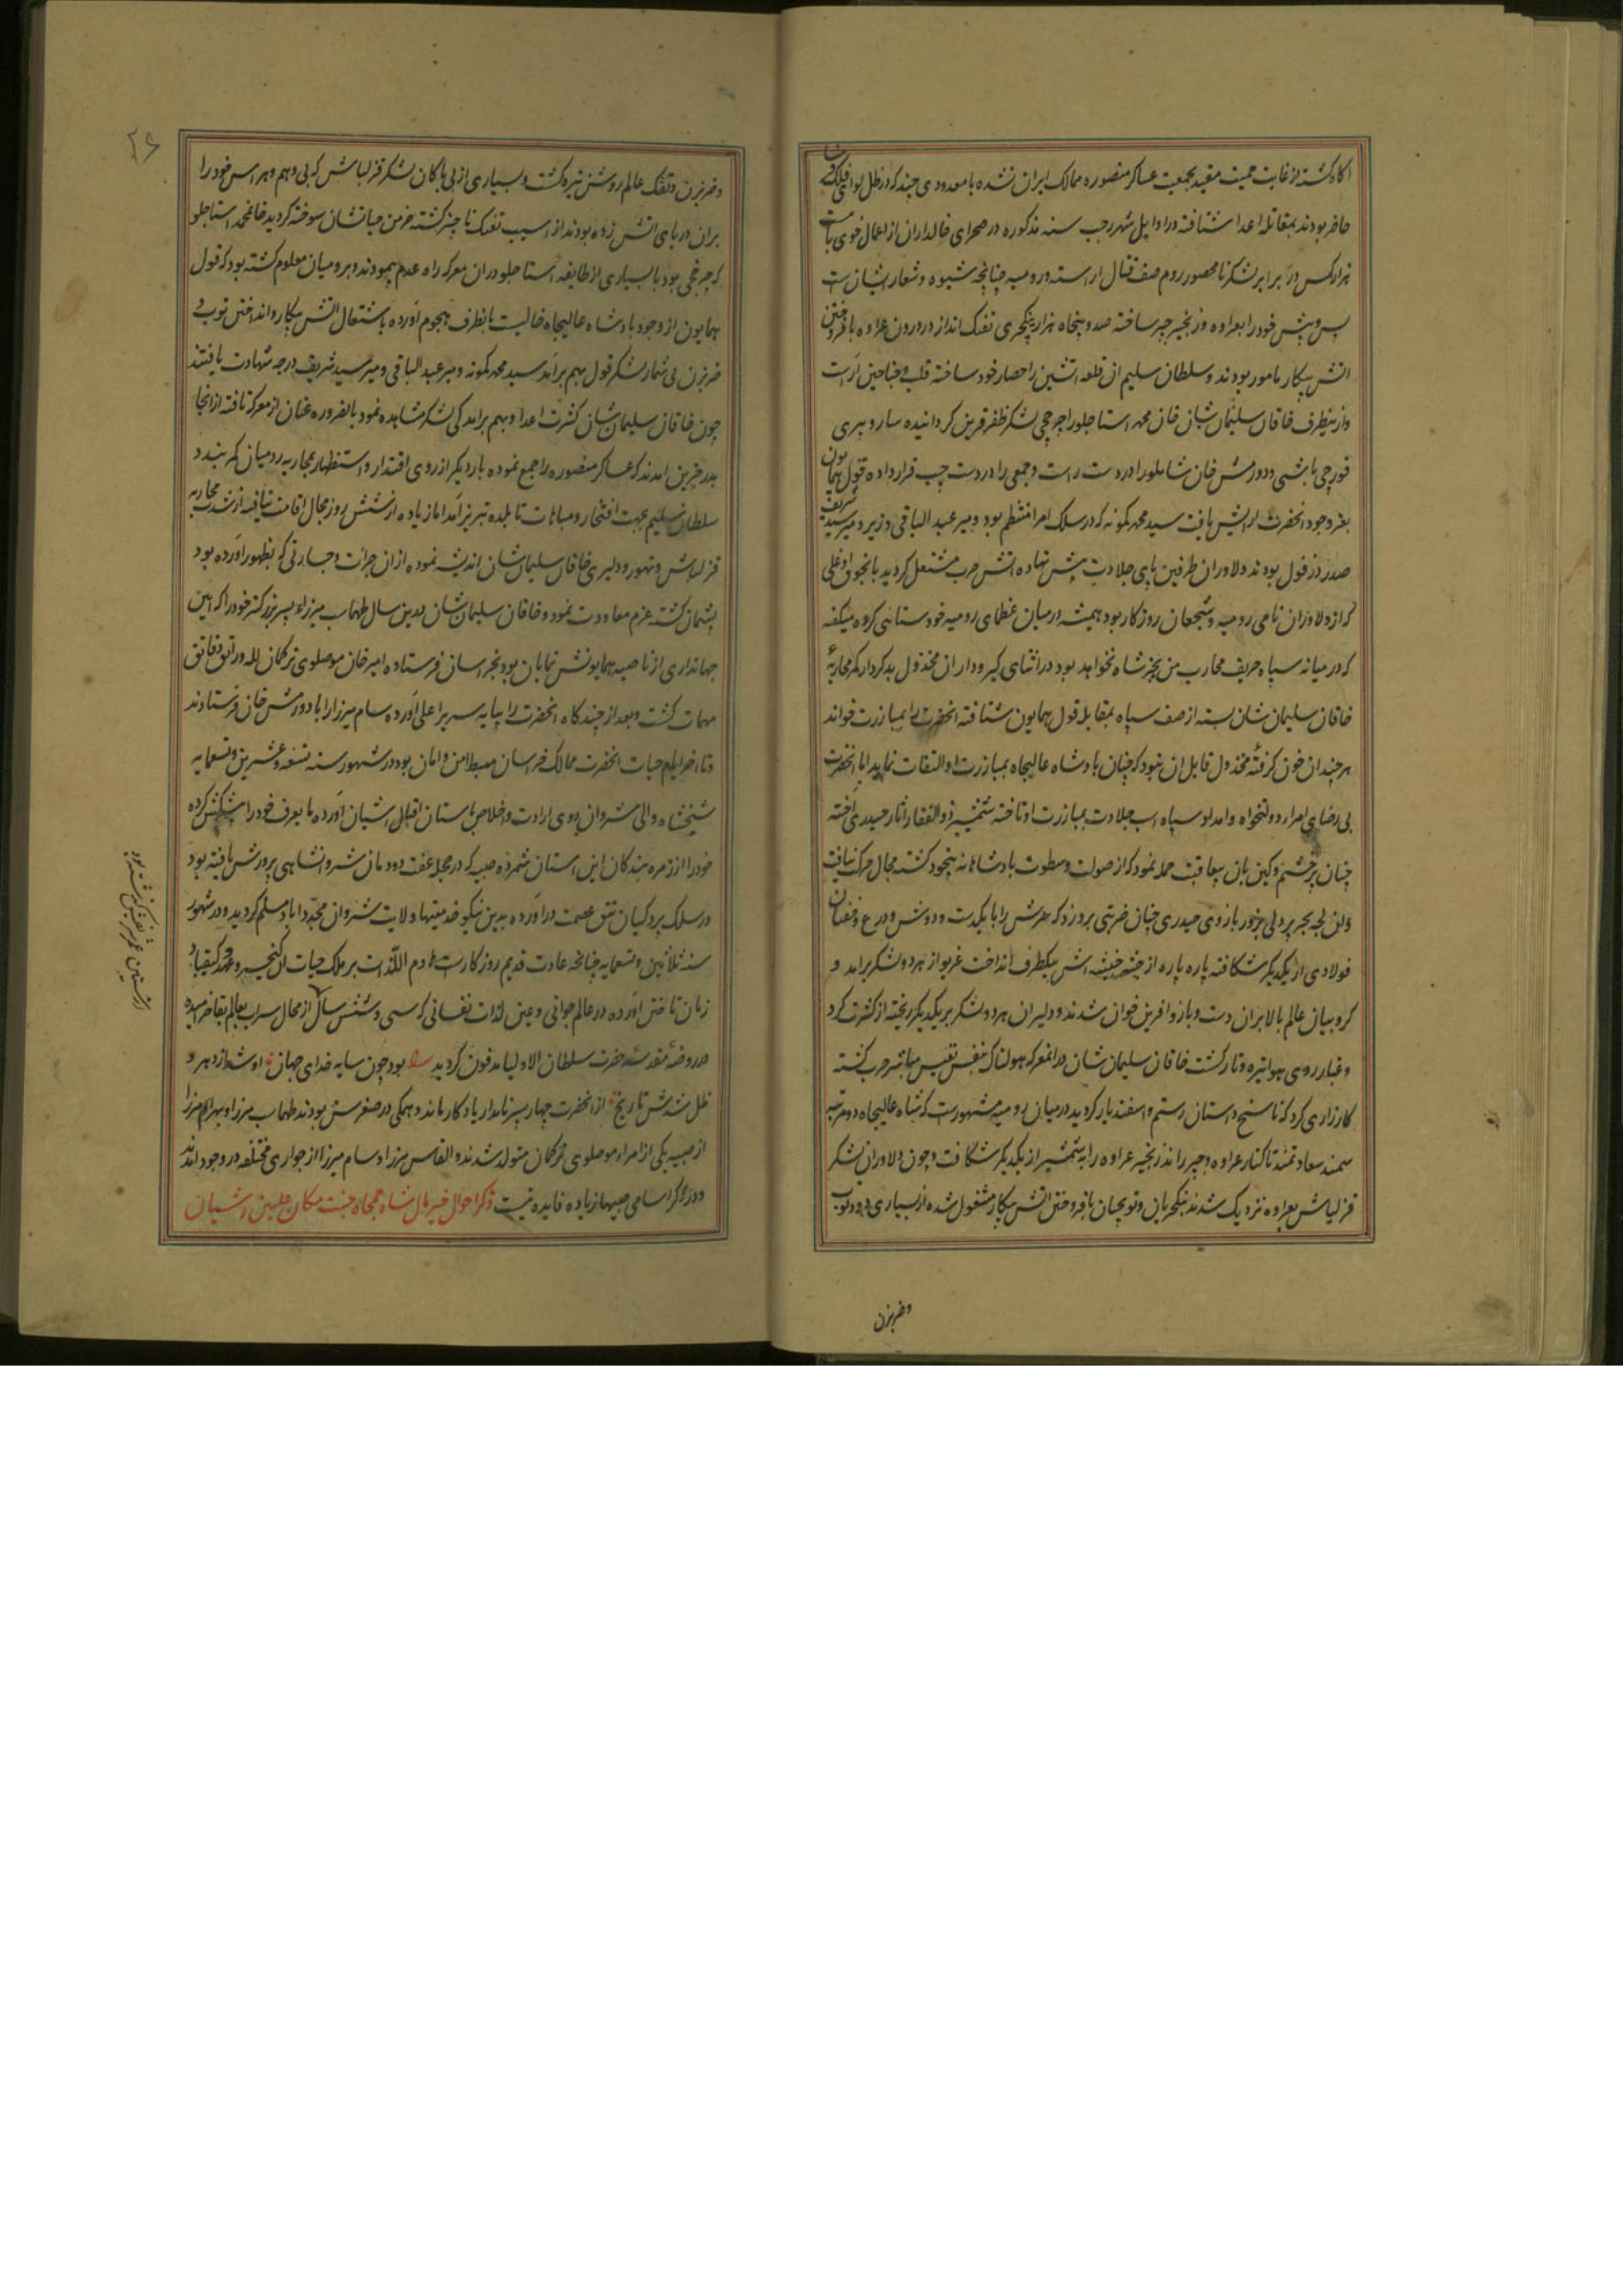 اکاه کشته از غایت حمیت مقید بجمعیت عساکر منصوره ممالک ایران نشده با معدودی چند که در ظل لوای فلک فرسا
حاضر بودند بمقاتله اعدا شتافته در اوایل شهر رجب سنه مذکوره در صحرای خالداران از اعمال خوی با بیست
هزار کس در برابر لشکر نامحصور روم صف قتال اراسته و رومیه چنانچه شیوه و شعار ایشان است
پس و پیش خود را بعراده و زنجیر چپر ساخته صد و پنجاه هزار ینکچری تفنک انداز در درون عراده بافروختن
اتش پیکار مامور بودند و سلطان سلیم ان قلعه اتشین را حصار خود ساخته قلب و جناحین اراست
و از ینطرف خاقان سلیمان شان خان محمد استاجلو را چرخچی لشکر ظفر قرین کردانیده سارو پیری
قورچی باشی و دورمش خان شاملو را در دست راست و جمعی را در دست چپ قرار داده قول همایون
بفر وجود انحضرت ارایش یافت سید محمد کمونه که در سلک امرا منتظم بود و میر عبد الباقی وزیر و میر سید شریف
صدر در قول بودند دلاوران طرفین پای جلادت پیش نهاده اتش حرب مشتعل کردید مالقوج اوغلی
که از دلاوران نامی رومیه و شجعان روزکار بود همیشه در میان عظمای رومیه خودستائی کرده میکفته
که در میانه سپاه حریف محارب من بجز شاه نخواهد بود در اثنای کیر و دار ان مخذول بد کردار که محاربه
خاقان سلیمان شان بسته از صف سپاه بمقابله قول همایون شتافته انحضرت را بمبارزت خواند
هر چند ان خون کرفته مخذول قابل ان نبود که چنان پادشاه عالیجاه بمبارزت او التفات نماید اما انحضرت
بی رضای امراء دولتخواه و امداد سپاه اسب جلادت بمبارزت او تاخته شمشیر ذو الفقار اثار حیدری اخته
چنان پر خشم و کین بان بیعاقبت حمله نمود که از صولت و سطوت پادشاهانه بیخود کشته مجال حرکت نیافت
وان لجه بحر پر دلی بزور بازوی حیدری چنان ضربتی برو زد که سرش را با یکدست و دوش و درع و خفتان
فولادی از یکدیکر شکافته پاره پاره از جثه خبیثه اش بیکطرف انداخت غریو از هر دو لشکر برامد و
کروبیان عالم بالا بران دست و بازو افرین خوان شدند و دلیران هر دو لشکر بر یکدیکر ریخته از کثرت کرد
و غبار روی هوا تیره و تار کشت خاقان سلیمان شان در انمعرکه هولناک بنفس نفیس مباشر حرب کشته
کارزاری کرد که ناسخ داستان رستم و اسفندیار کردید در میان رومیه مشهورست که شاه عالیجاه دو مرتبه
سمند سعادتمند تا کنار عراده و چپر رانده زنجیر عراده را بشمشیر از یکدیکر شکافت و چون دلاوران لشکر
قزلباش بعراده نزدیک شدند ینکچریان و توپچیان بافروختن اتش پیکار مشغول شده از بسیاری دود توپ
وضربزن
وضربزن و تفنک عالم روشن تیره کشت و بسیاری از بی باکان لشکر قزلباش که بی وهم و هراس خود را
بران دریای اتش زده بودند از اسیب تفنک ناچیز کشته خرمن حیاتشان سوخته کردید خانمحمد استاجلو
که چرخچی بود با بسیاری از طایفه استاجلو دران معرکه راه عدم پیمودند و بر رومیان معلوم کشته بود که قول
همایون از وجود پادشاه عالیجاه خالیست بانطرف هجوم اورده باشتعال اتش پیکار و انداختن توپ و
ضربزن بی شمار لشکر قول بهم برامد سید محمد کمونه و میر عبد الباقی و میر سید شریف درجه شهادت یافتند
چون خاقان سلیمان شان کثرت اعدا و بهم برامدکی لشکر مشاهده نمود بالضروره عنان از معرکه تافته از انجا
بدرجزین امدند که عساکر منصوره را جمع نموده بار دیکر از روی اقتدار و استظهار بمحاربه رومیان کمر بندند
سلطان سلیم بجهت افتخار و مباهات تا بلده تبریز امد اما زیاده از شش روز مجال اقامت نیافته از شدت محاربه
قزلباش و تهور و دلیری خاقان سلیمان شان اندیشه نموده از ان جرات و جسارتی که بظهور اورده بود
پشیمان کشته عزم معاودت نمود و خاقان سلیمان شان بدین سال طهماسب میرزا پسر بزرکتر خود را که ائین
جهانداری از ناصیه همایونش نمایان بود بخراسان فرستاده امیر خان موصلوی ترکمان لله و راتق و فاتق
مهمات کشت و بعد از چند کاه انحضرت را بپایه سریر اعلی اورده سام میرزا را با دورمش خان فرستادند
و تا اخر ایام حیات انحضرت ممالک خراسان مهبط امن و امان بود در شهور سنه تسعه و عشرین و تسعمایه
شیخشاه والی شروان روی ارادت و اخلاص باستان اقبال اشیان اورده ما یعرف خود را پیشکش کرده
خود را از زمره بندکان این استان شمرده صبیه که در حجله عفت دودمان شروانشاهی پرورش یافته بود
در سلک پردکیان تتق عصمت دراورده بدین نیکو خدمتیها ولایت شروان مجددا باو مسلم کردید و در شهور
سنه ثلاثین و تسعمایه چنانچه عادت قدیم روزکار است هادم اللذات بر ملک حیات ان کیخسرو عهد و کیقباد
زمان تاختن اورده در عالم جوانی و عین لذات نفسانی که سی و شش سال از مجال سراب بعالم بقا خرامیده
در روضه مقدسه حضرت سلطان الاولیا مدفون کردید بود چون سایه خدای جهان او شد از دهر و
ظل شدش تاریخ از انحضرت چهار پسر نامدار یادکار ماند و همکی در صغر سن بودند طهماسب میرزا و بهرام میرزا
از صبیه یکی از امراء موصلوی ترکمان متولد شدند و القاس میرزا و سام میرزا از جواری مختلفه در وجود امدند
و در ذکر اسامی صبیها زیاده فایده نیست ذکر احوال خیر مال شاه جمجاه جنت مکان علیین اشیان
۲۶